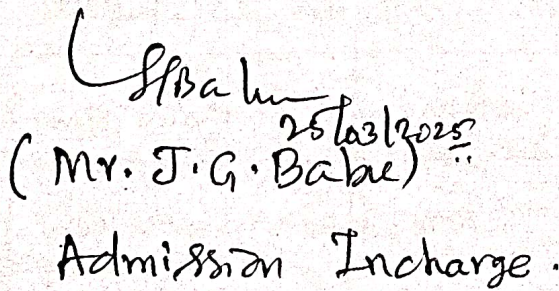 25/03/2025
(Mr. J.G. Babu)
Admission Incharge.